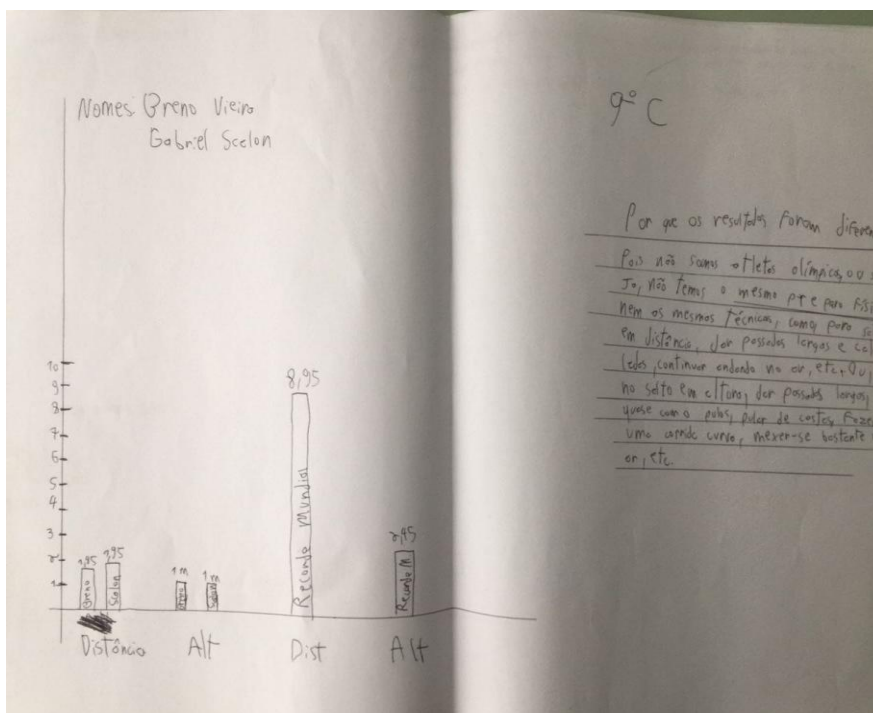 Nomes: Breno Vieira
Gabriel Scelon
10
9
8
7
6
5
4
3
2
1
1,95
1,95
Breno
Scelon
1 m
1 m
8,95
Recorde Mundial
2,45
Recorde M
Distância
Alt
Dist
Alt
9º C
Por que os resultados foram diferen
Pois não somos atletas olímpicos, ou s
Ja, não temos o mesmo preparo físi
nem as mesmas técnicas, como, para sal
em distância, dar passadas largas e
continuar andando no ar, etc. Ou,
no salto em altura, dar passadas largas,
quase como pulos, pular de costas, faze
uma curva, mexer-se bastante
ar, etc.